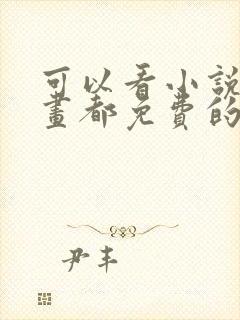 可以看小說
畫都免費的
尹丰